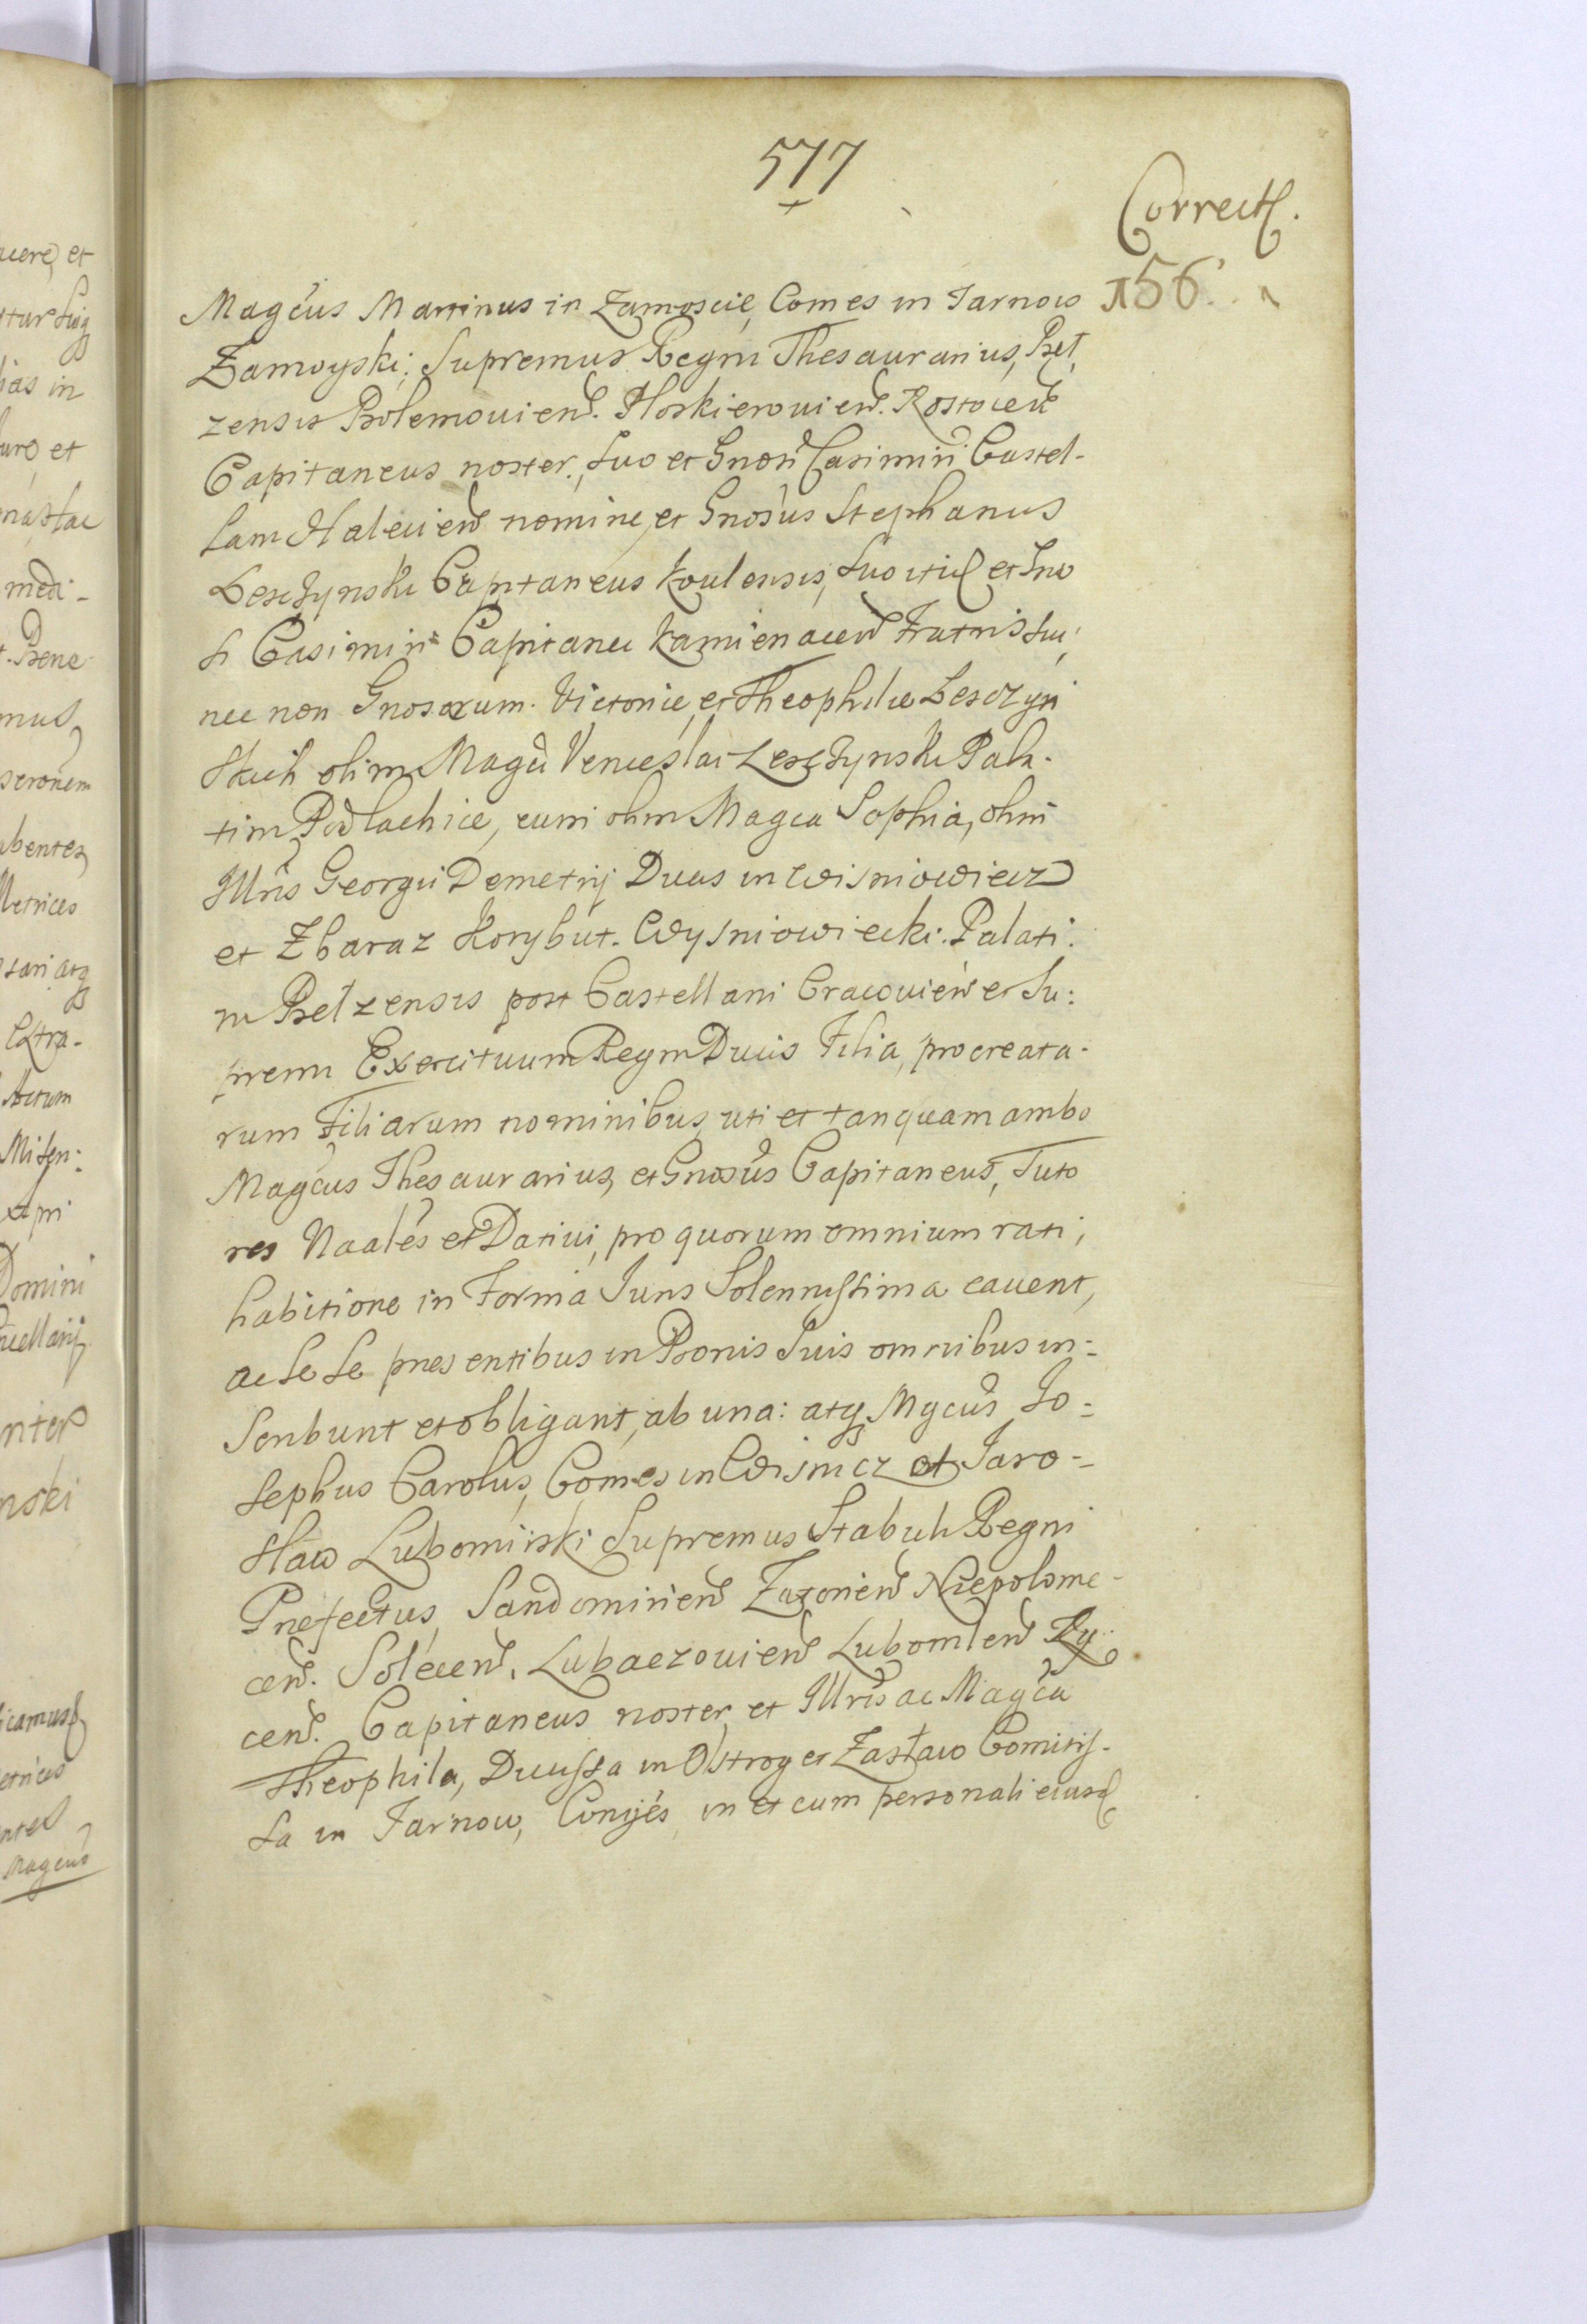 577
Correct.
156.
Magcus Martinus in Zamoscie, Comes in Tarnow
Zamoyski, Supremus Regni Thesaurarius, Bel,
zensis Bolemouien. Ploskierouien. Rostocen
Capitaneus noster, Suo et Gnosi Casimiri Castel-
lani Halicien nomine, et Gnosus Stephanus
Lesczynski Capitaneus Koulensis, Suo itid et Gno
si Casimiri Capitanei Kamienacen Fratris sui,
nec non Gnosarum. Victoriæ et Theophilæ Lesczyn
skich olim Magci Venceslai Lesczynski Pala-
tini Podlachiæ, cum olim Magca Sophia, olim
Illris Georgii Demetrij Ducis in Wisniowiecz
et Zbaraz Korybut. Wysniowiecki. Palati.
ni Belzensis post Castellani Cracouien et Su:
premi Exercituum Regni Ducis Filia, procreata-
rum Filiarum nominibus, uti et tanquam ambo
Magcus Thesaurarius, et Gnosus Capitaneus, Tuto
res Naales et Datiui, pro quorum omnium rati,
habitione in Forma Iuris Solennissima cauent,
ac se se presentibus in Bonis Suis omnibus in:
scribunt et obligant, ab una: atq Mgcus Jo=
sephus Carolus, Comes in Wisnicz et Jaro-
slaw Lubomirski Supremus Stabuli Regni
Præfectus, Sandomirien Zatorien Niepolome-
cen. Solecen, Lubaczouien Lubomlen Ry
cen. Capitaneus noster, et Illris ac Magca
Theophila, Ducissa in Ostrog et Zaslaw Comitis-
sa in Tarnow, Conjés in et cum personali eiusd